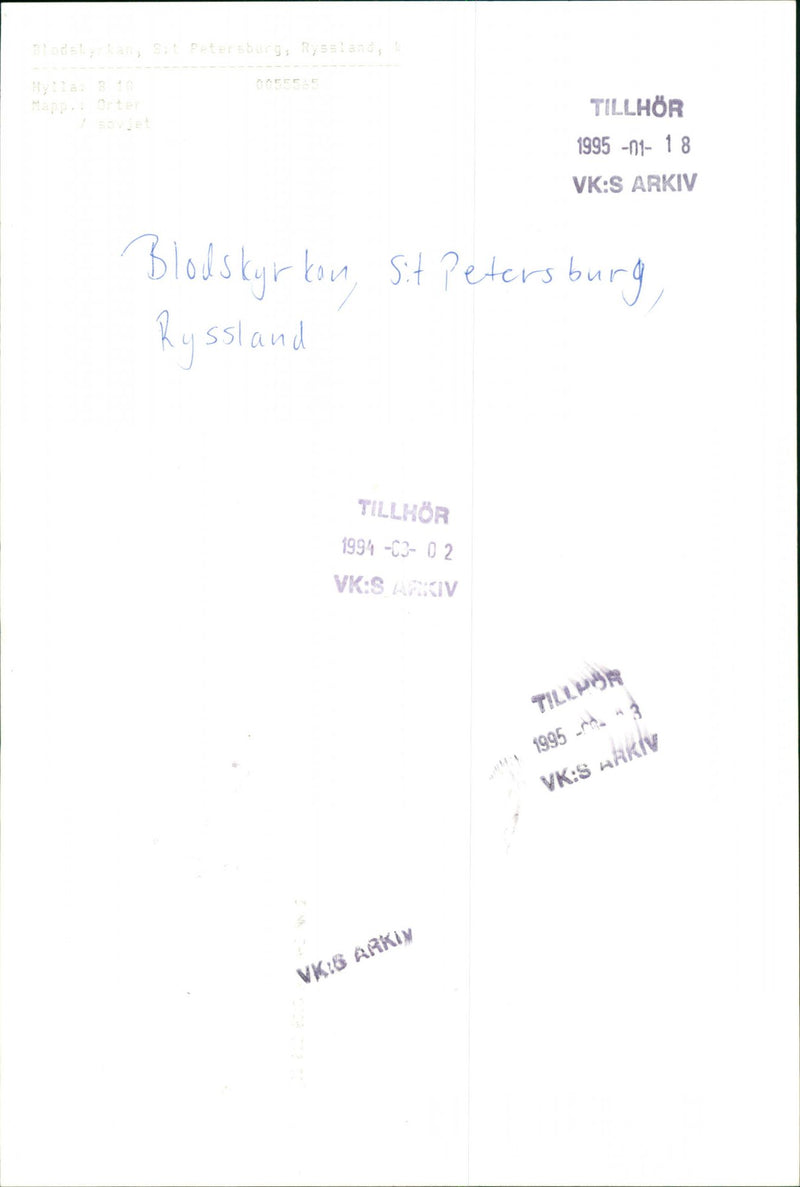 Blodskyrkan, S:t Petersburg, Ryssland, k
Hylla: B 10 0055565
Mapp.: Orter
/ sovjet
TILLHÖR
1995 -01- 18
VK:S ARKIV
Blodskyrkan, S:t Petersburg,
Ryssland
TILLHÖR
1994 -03- 02
VK:S ARKIV
TILLHÖR
1995
VK:S ARKIV
VK:S ARKIV